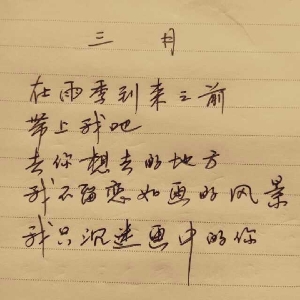 三月
在雨季到来之前
带上我吧
去你想去的地方
我不留恋如画的风景
我只沉迷画中的你